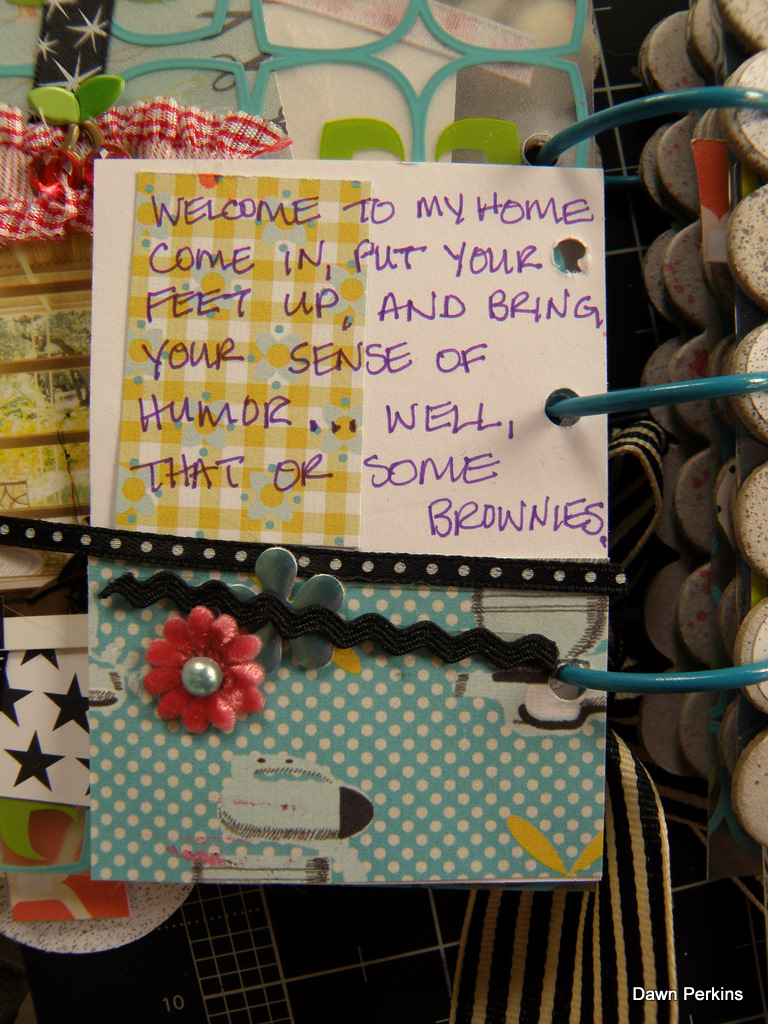 WELCOME TO MY HOME
COME IN, PUT YOUR
FEET UP, AND BRING
YOUR SENSE OF
HUMOR... WELL,
THAT OR SOME
BROWNIES.
10
Dawn Perkins